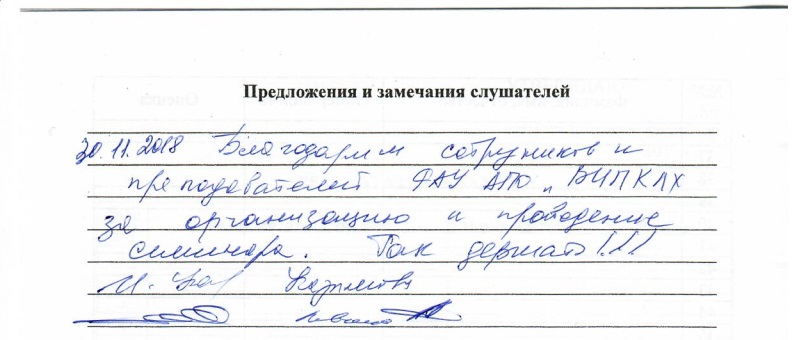 Предложения и замечания слушателей
30.11.2018 Благодарим сотрудников и
преподавателей ФАУ АПО и ВИПКЛХ
за организацию и проведение
семинара. Так держать!!!